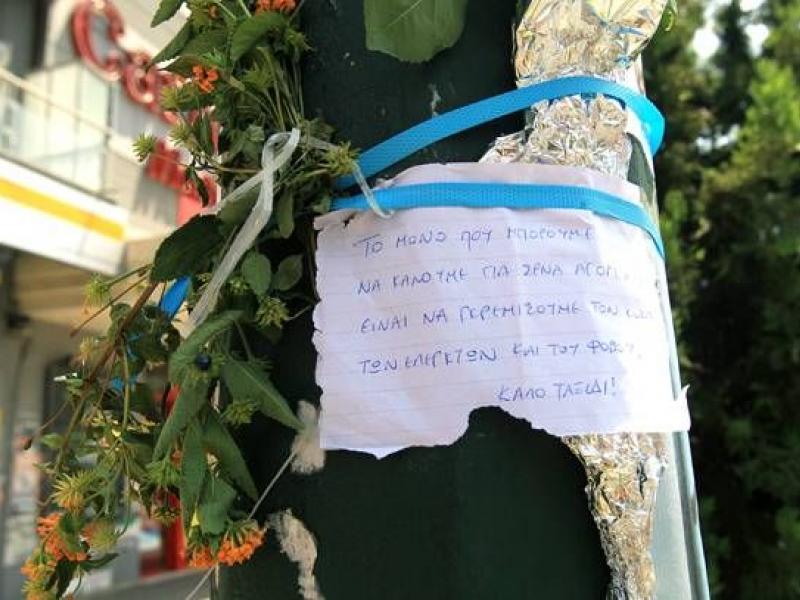 Ca
ΤΟ ΜΟΝΟ ΠΟΥ ΜΠΟΡΟΥΜΕ
ΝΑ ΚΑΝΟΥΜΕ ΓΙΑ ΣΕΝΑ ΑΓΟΡΙ
ΕΙΝΑΙ ΝΑ ΓΚΡΕΜΙΣΟΥΜΕ ΤΟΝ
ΤΩΝ ΕΛΕΓΚΤΩΝ ΚΑΙ ΤΟΥ ΦΟΒΟΥ.
ΚΑΛΟ ΤΑΞΙΔΙ!